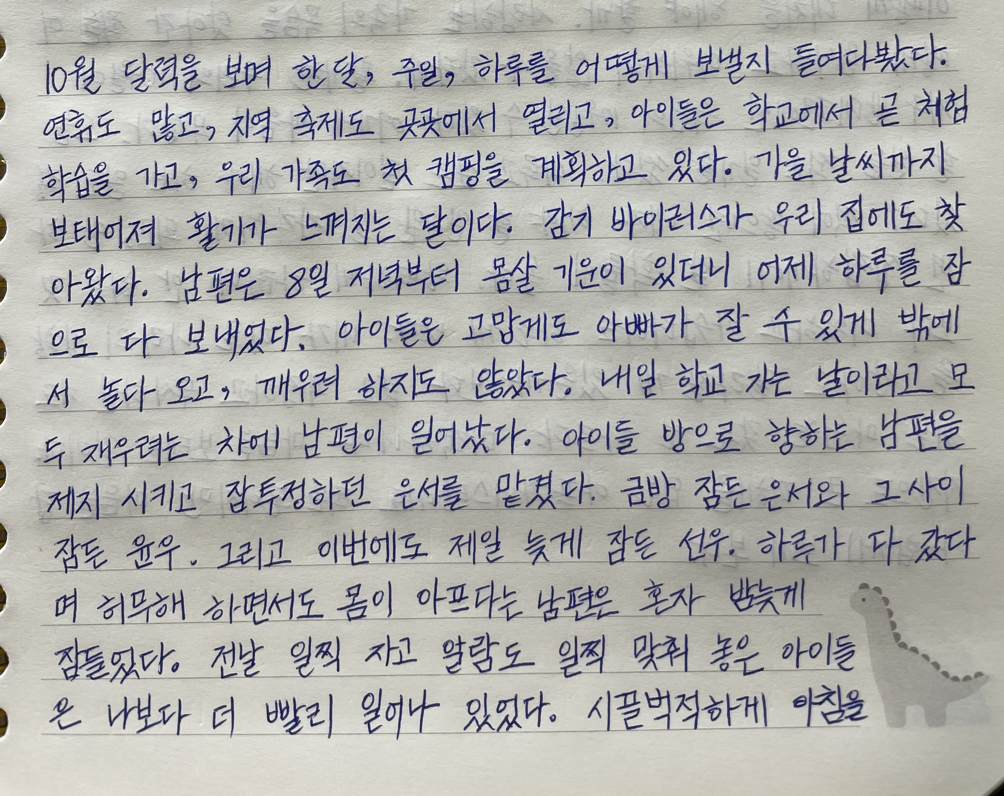 10월 달력을 보며 한 달, 주일, 하루를 어떻게 보낼지 들여다봤다.
연휴도 많고, 지역 축제도 곳곳에서 열리고, 아이들은 학교에서 곧 체험
학습을 가고, 우리 가족도 첫 캠핑을 계획하고 있다. 가을 날씨까지
보태어져 활기가 느껴지는 달이다. 감기 바이러스가 우리 집에도 찾
아왔다. 남편은 8일 저녁부터 몸살 기운이 있더니 어제 하루를 잠
으로 다 보내었다. 아이들은 고맙게도 아빠가 잘 수 있게 밖에
서 놀다 오고, 깨우려 하지도 않았다. 내일 학교 가는 날이라고 모
두 재우려는 차에 남편이 일어났다. 아이들 방으로 향하는 남편을
제지 시키고 잠투정하던 은서를 맡겼다. 금방 잠든 은서와 그 사이
잠든 윤우. 그리고 이번에도 제일 늦게 잠든 선우. 하루가 다 갔다
며 허무해 하면서도 몸이 아프다는 남편은 혼자 밤늦게
잠들었다. 전날 일찍 자고 알람도 일찍 맞춰 놓은 아이들
은 나보다 더 빨리 일어나 있었다. 시끌벅적하게 아침을